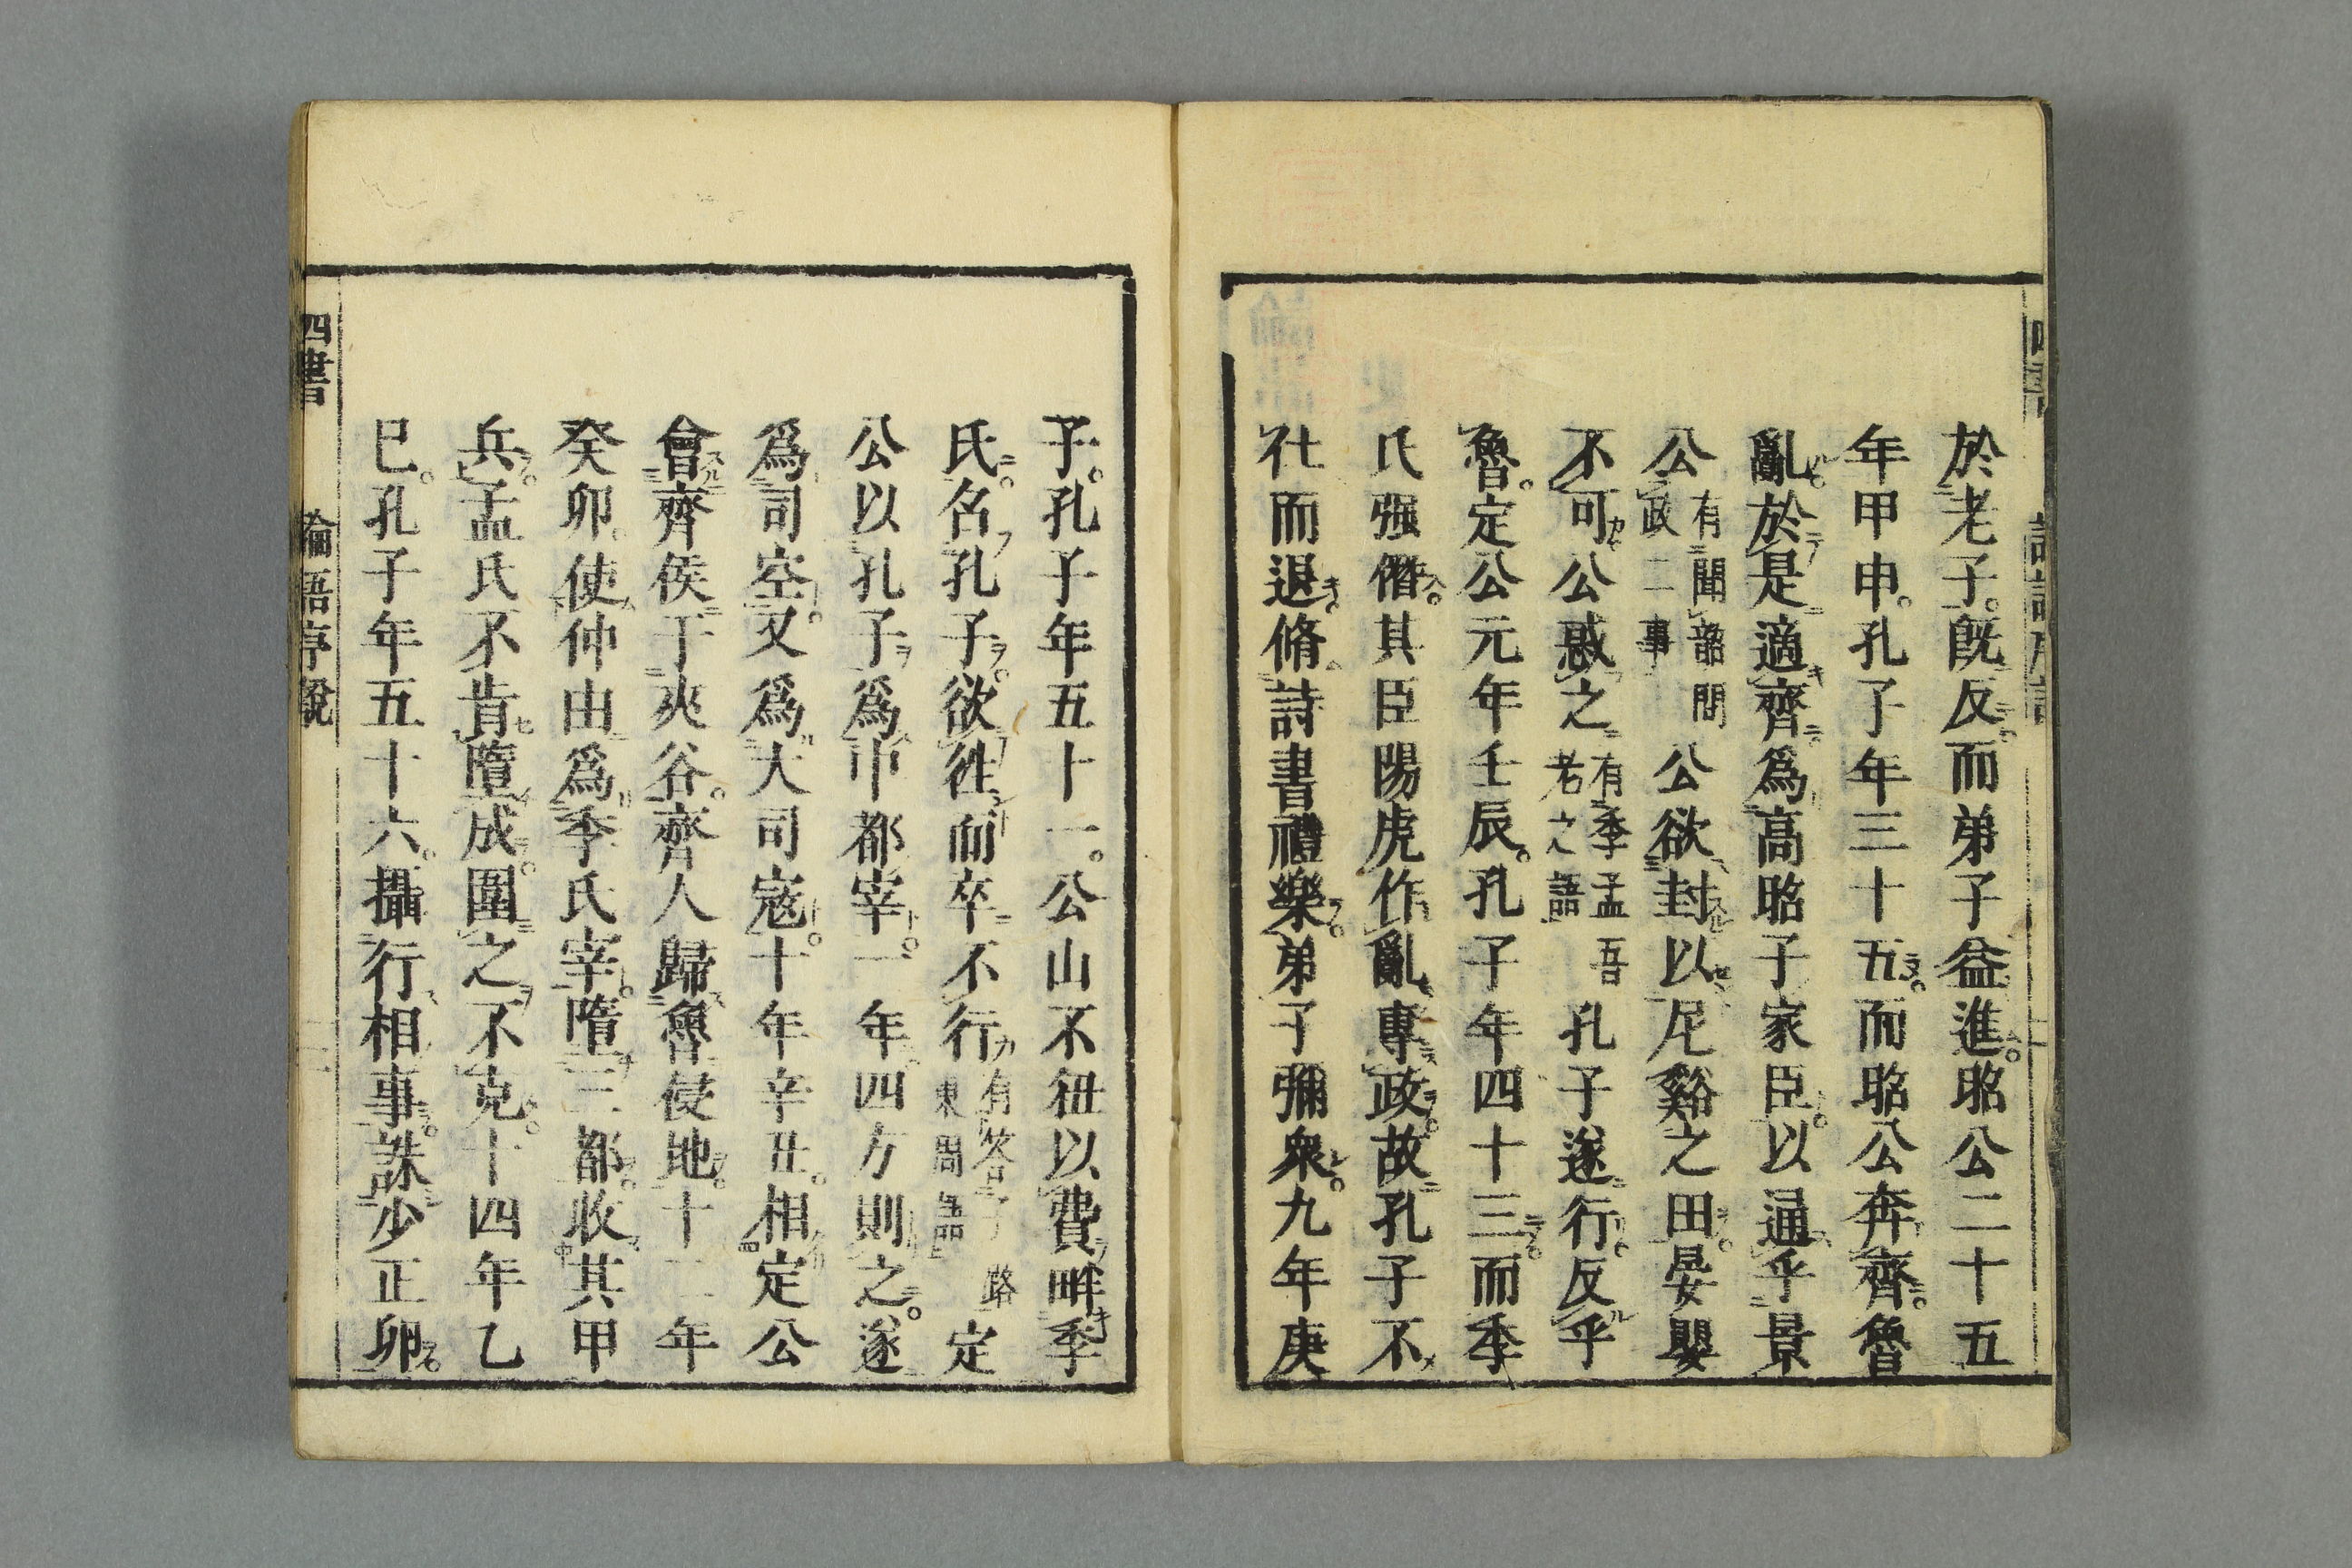 於老子。既反。而弟子益進。昭公二十五
年甲申。孔子年三十五。而昭公奔齊。魯
亂。於是適齊。爲高昭子家臣。以通乎景
公有聞韶問政二事公欲封以尼谿之田。晏嬰
不可公惑之有季孟吾老之語孔子遂行。反乎
魯。定公元年壬辰。孔子年四十三。而季
氏强僭。其臣陽虎作亂專政。故孔子不
仕而退。脩詩書禮樂。弟子彌衆。九年庚
子。孔子年五十一。公山不狃以費畔季
氏。召孔子。欲徃而卒不行有答子路東周語定
公以孔子爲中都宰。一年。四方則之。遂
爲司空。又爲大司寇。十年辛丑。相定公
會齊侯于夾谷。齊人歸魯侵地。十二年
癸卯。使仲由爲季氏宰。墮三都。收其甲
兵。孟氏不肯墮成。圍之不克。十四年乙
巳。孔子年五十六。攝行相事。誅少正卯。
四書 論語序說